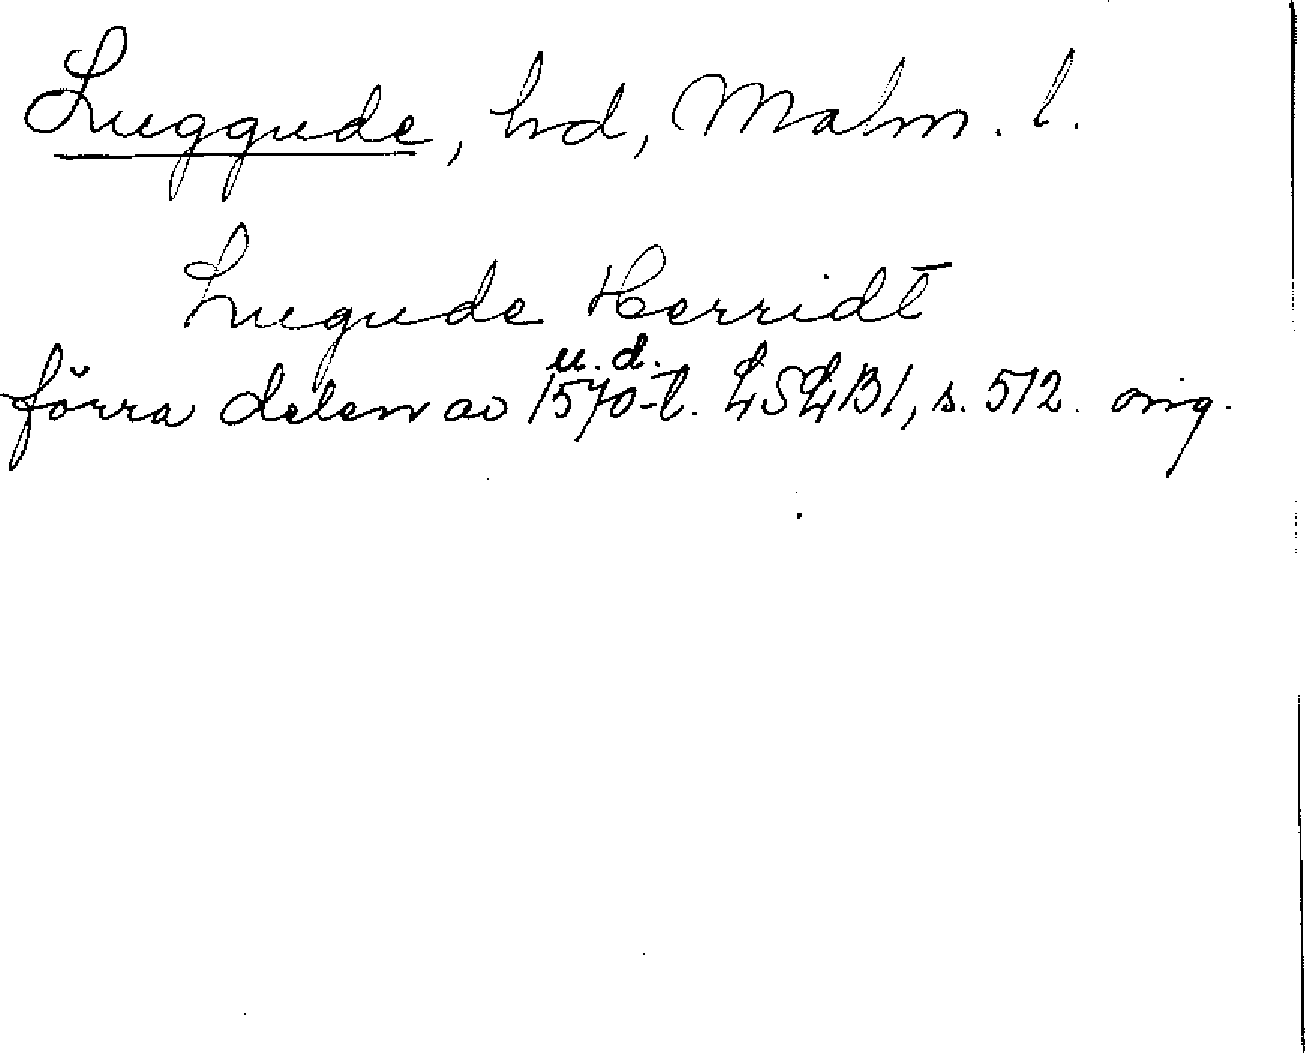 Luggude, hd, Malm. l.
Lugude Herridt
u. d.
förra delen av 1570-t. LSLB1, s. 512. orig.